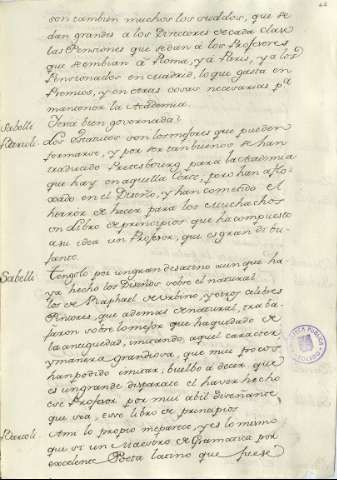 son tambien muchos los sueldos, que se
dan grandes a los Directores de cada clase
las Pensiones que se dan à los Profesores
que se embian à Roma, y à Paris, y à los
Pensionados en Madrid, lo que gasta en
Premios, y en otras cosas necesarias pª
mantener la Academia.
Sabelli Será bien governada?
Parcoli. Los Estatutos son los mejores que pueden
formarse, y por ser tan buenos se han
traducido Petesbourg para la Academia
que hay en aquella Corte, pero han aflo-
xado en el Diseño, y han cometido el
herror de hacer para los Muchachos
un libro de principios que ha compuesto
a su idea un Profesor, que es gran dibu-
jante.
Sabelli Tengolo por un gran desatino aunque ha-
ya hecho los Diseños sobre el natural
los de Raphael de Urbino, y otros celebres
Pintores, que ademas de natural, traba-
jaron sobre lo mejor que ha quedado de
la antiguedad, imitando aquel caracter
y manera grandiosa, que muy pocos
han podido imitar; buelbo à decir que
es un grande disparate el haver hecho
ese Profesor por muy abil divujante
que sea, ese libro de principios
Parcoli Ami lo propio me parece, y es lo mismo
que si un Maestro de Gramatica por
excelente Poeta latino que fuese